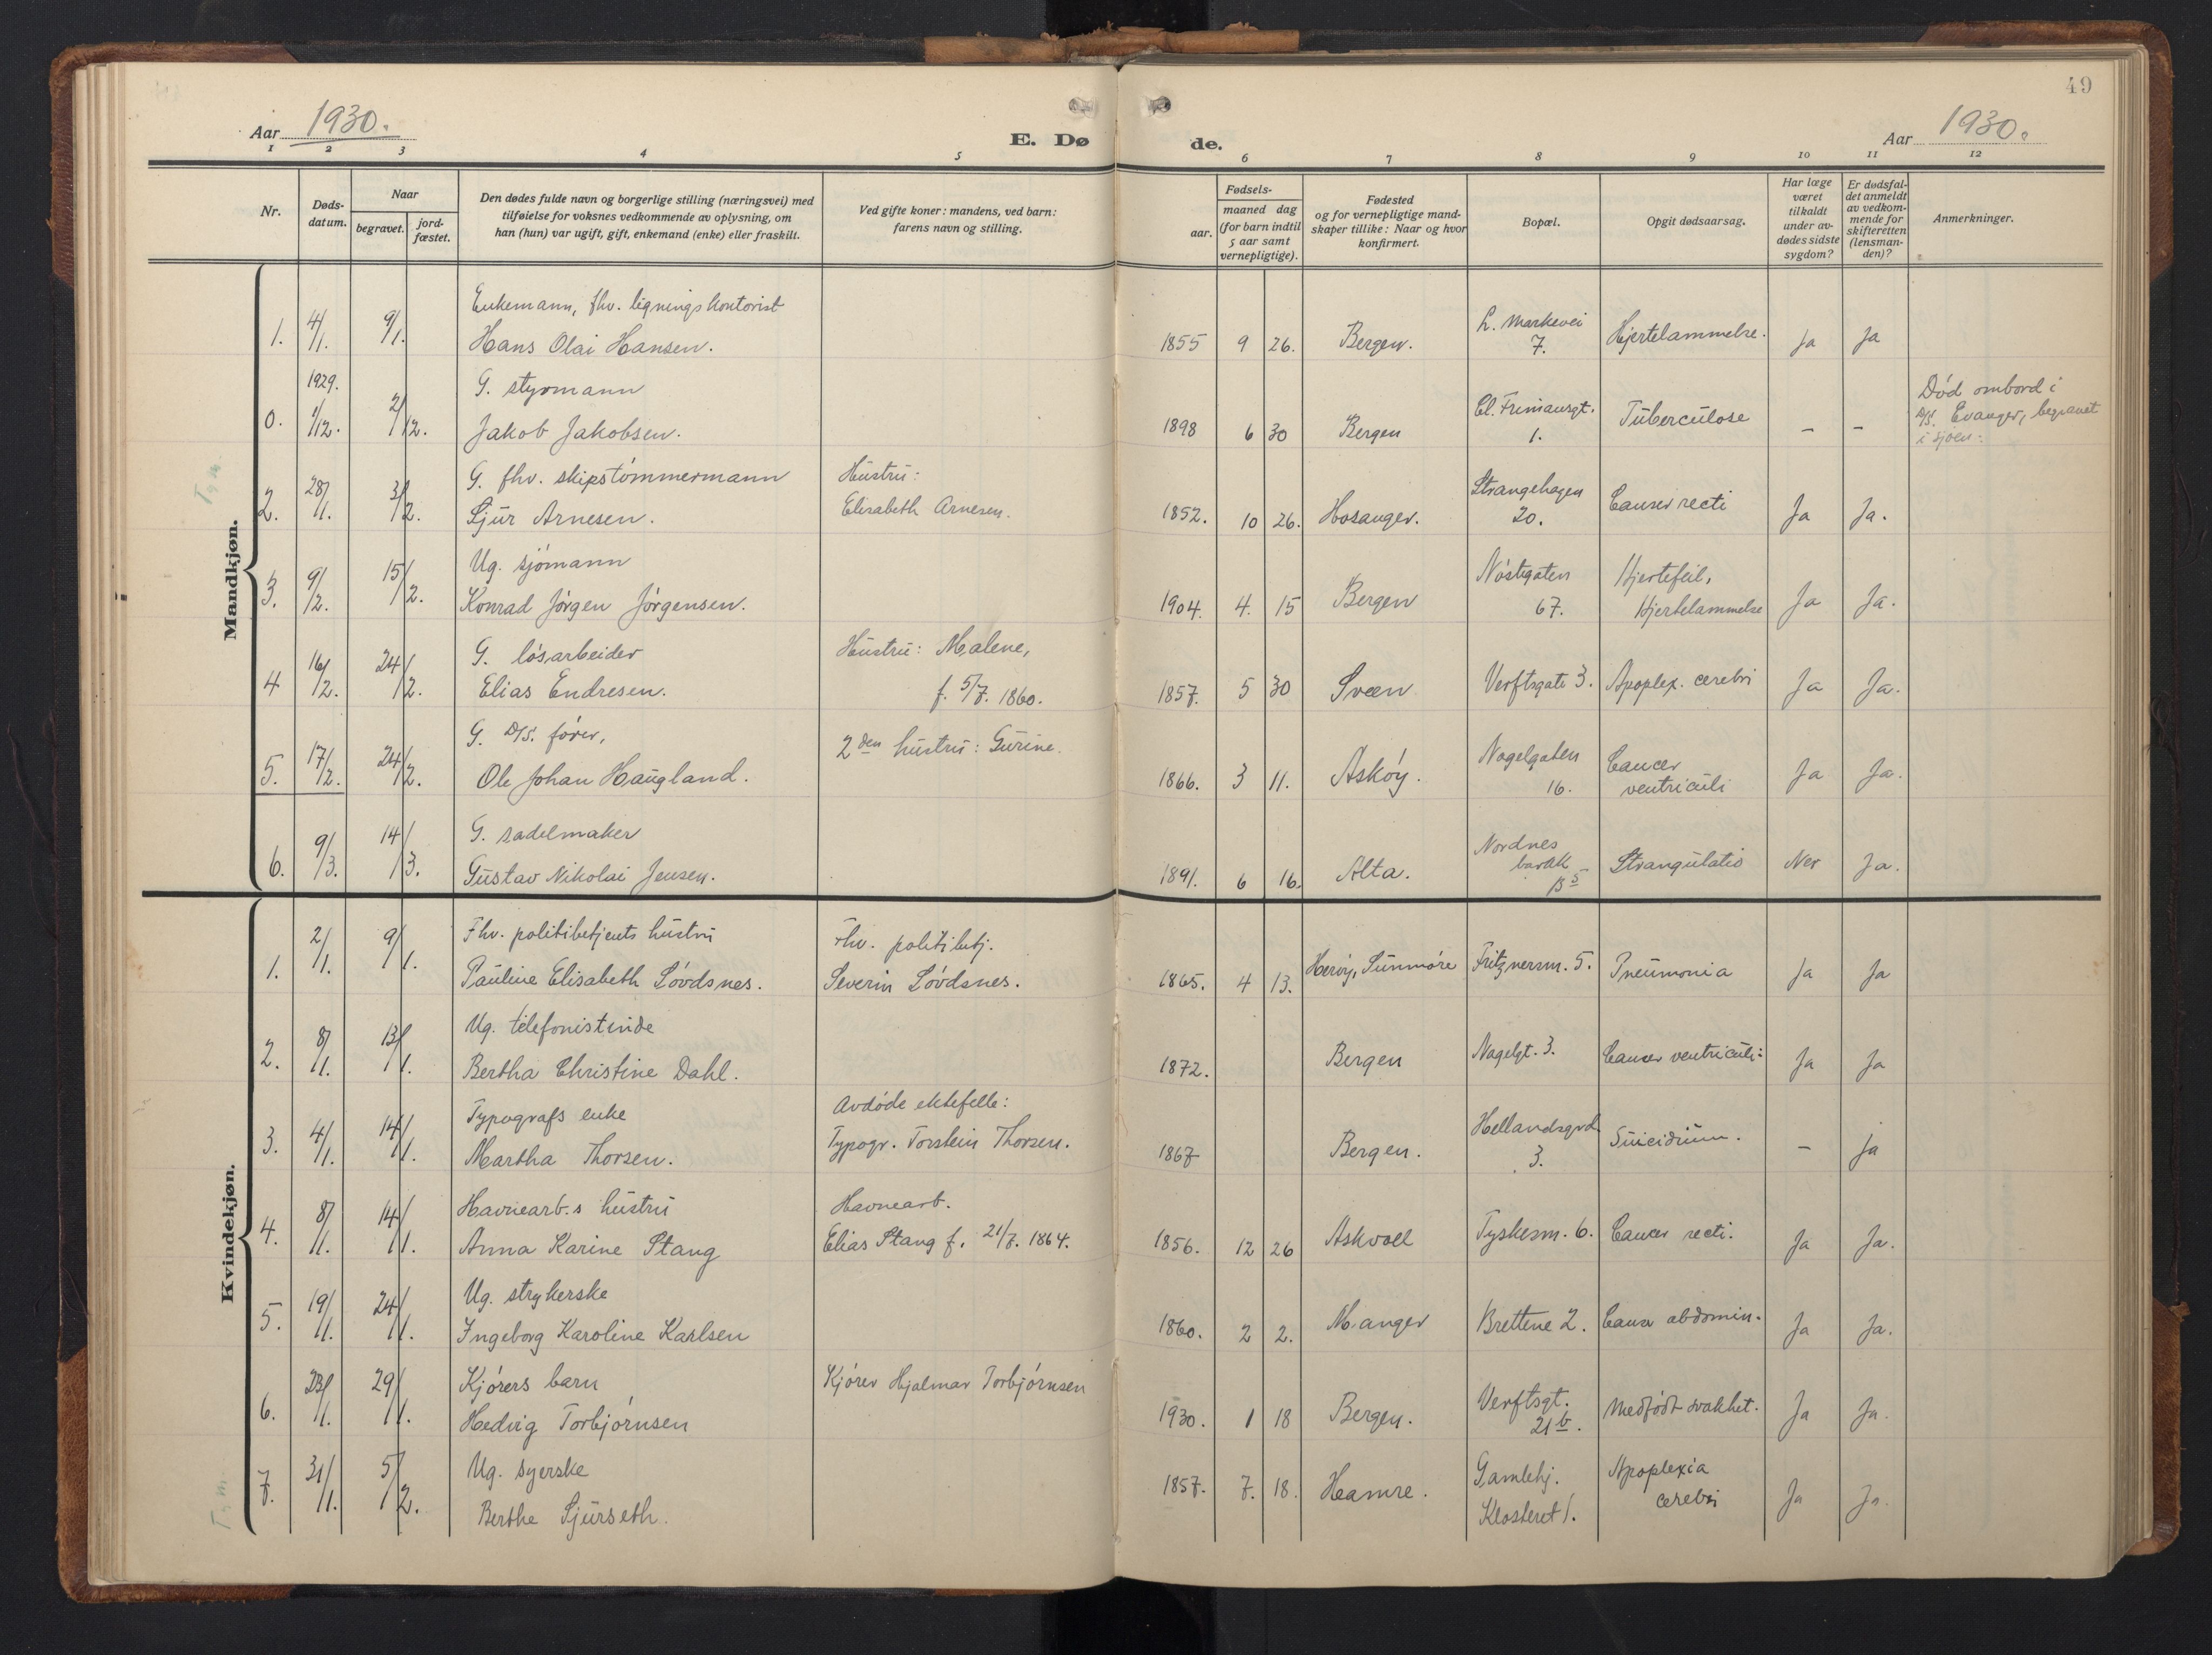 49
Aar 1930.
E. Dø de.
Aar 1930.
1 2 3 4 5 6 7 8 9 10 11 12
Nr.
Døds-
datum.
Naar
begravet.
jord-
fæstet.
Den dødes fulde navn og borgerlige stilling (næringsvei) med
tilføielse for voksnes vedkommende av oplysning, om
han (hun) var ugift, gift, enkemand (enke) eller fraskilt.
Ved gifte koner: mandens, ved barn:
farens navn og stilling.
Fødsels-
aar.
maaned dag
(for barn indtil
5 aar samt
vernepligtige).
Fødested
og for vernepligtige mand-
skaper tillike: Naar og hvor
konfirmert.
Bopæl.
Opgit dødsaarsag.
Har læge
været
tilkaldt
under av-
dødes sidste
sygdom?
Er dødsfal-
det anmeldt
av vedkom-
mende for
skifteretten
(lensman-
den)?
Anmerkninger.
Mandkjøn.
1. 4/1. 9/1.
Enkemann, fhv. ligningskontorist
Hans Olai Hansen.
1855 9 26. Bergen.
L. Markevei
7.
Hjertelammelse. Ja Ja
0. 1929.
1/12. 2/12.
G. styrmann
Jakob Jakobsen.
1898 6 30 Bergen
Cl. Frimansgt.
1.
Tuberculose - -
Död ombord i
D/S. Evanger, begravet
i sjöen.
2. 28/1. 3/2.
G. fhv. skipstömmermann
Sjur Arnesen.
Hustru:
Elisabeth Arnesen.
1852. 10 26. Hosanger.
Strangehagen
20.
Cancer recti Ja Ja.
3. 9/2. 15/2.
Ug. sjömann
Konrad Jörgen Jörgensen.
1904. 4. 15 Bergen
Nöstegaten
67.
Hjertefeil,
Hjertelammelse Ja Ja.
4 16/2. 24/2.
G. lösarbeider
Elias Endresen.
Hustru: Malene,
f. 5/7. 1860.
1857. 5 30 Sveen Verftsgate 3. Apoplex. cerebri Ja Ja.
5. 17/2. 24/2.
G. D/S. förer,
Ole Johan Haugland.
2den hustru: Gurine.
1866. 3 11. Asköy.
Nagelgaten
16.
Cancer
ventriculi
Ja Ja.
6. 9/3. 14/3.
G. sadelmaker
Gustav Nikolai Jensen.
1891. 6 16. Alta.
Nordnes
barakk
B 5
Strangulatio Nei Ja.
Kvindekjøn.
1. 2/1. 9/1.
Fhv. politibetjents hustru
Pauline Elisabeth Lövdsnes.
Fhv. politibetj.
Severin Lövdsnes.
1865. 4 13. Heröy, Sunmöre Fritznersm. 5. Pneumonia Ja Ja
2. 8/1. 13/1.
Ug. telefonistinde
Bertha Christine Dahl.
1872. Bergen Nagelgt. 3. Cancer ventriculi. Ja Ja
3. 4/1. 14/1.
Typografs enke
Martha Thorsen.
Avdöde ektefelle:
Typogr. Torstein Thorsen.
1867 Bergen.
Hellandsgrd.
3.
Suicidium. - Ja
4. 8/1. 14/1.
Havnearb.s hustru
Anna Karine Stang
Havnearb.
Elias Stang f. 21/7. 1864.
1856. 12 26 Askvoll Tyskesm. 6. Cancer recti. Ja Ja.
5. 19/1. 24/1.
Ug. strykerske
Ingeborg Karoline Karlsen
1860. 2 2. Manger Brettene 2. Cancer abdomin. Ja Ja.
6. 23/1. 29/1.
Kjörers barn
Hedvig Torbjörnsen
Kjörer Hjalmar Torbjörnsen
1930. 1 18 Bergen.
Verftsgt.
21 b.
Medfödt svakhet. Ja Ja.
7. 31/1. 5/2.
Ug. syerske
Berthe Sjurseth.
1857. 7. 18. Hamre.
Gamlehj.
Klosteret 1.
Apoplexia
cerebri
Ja Ja.